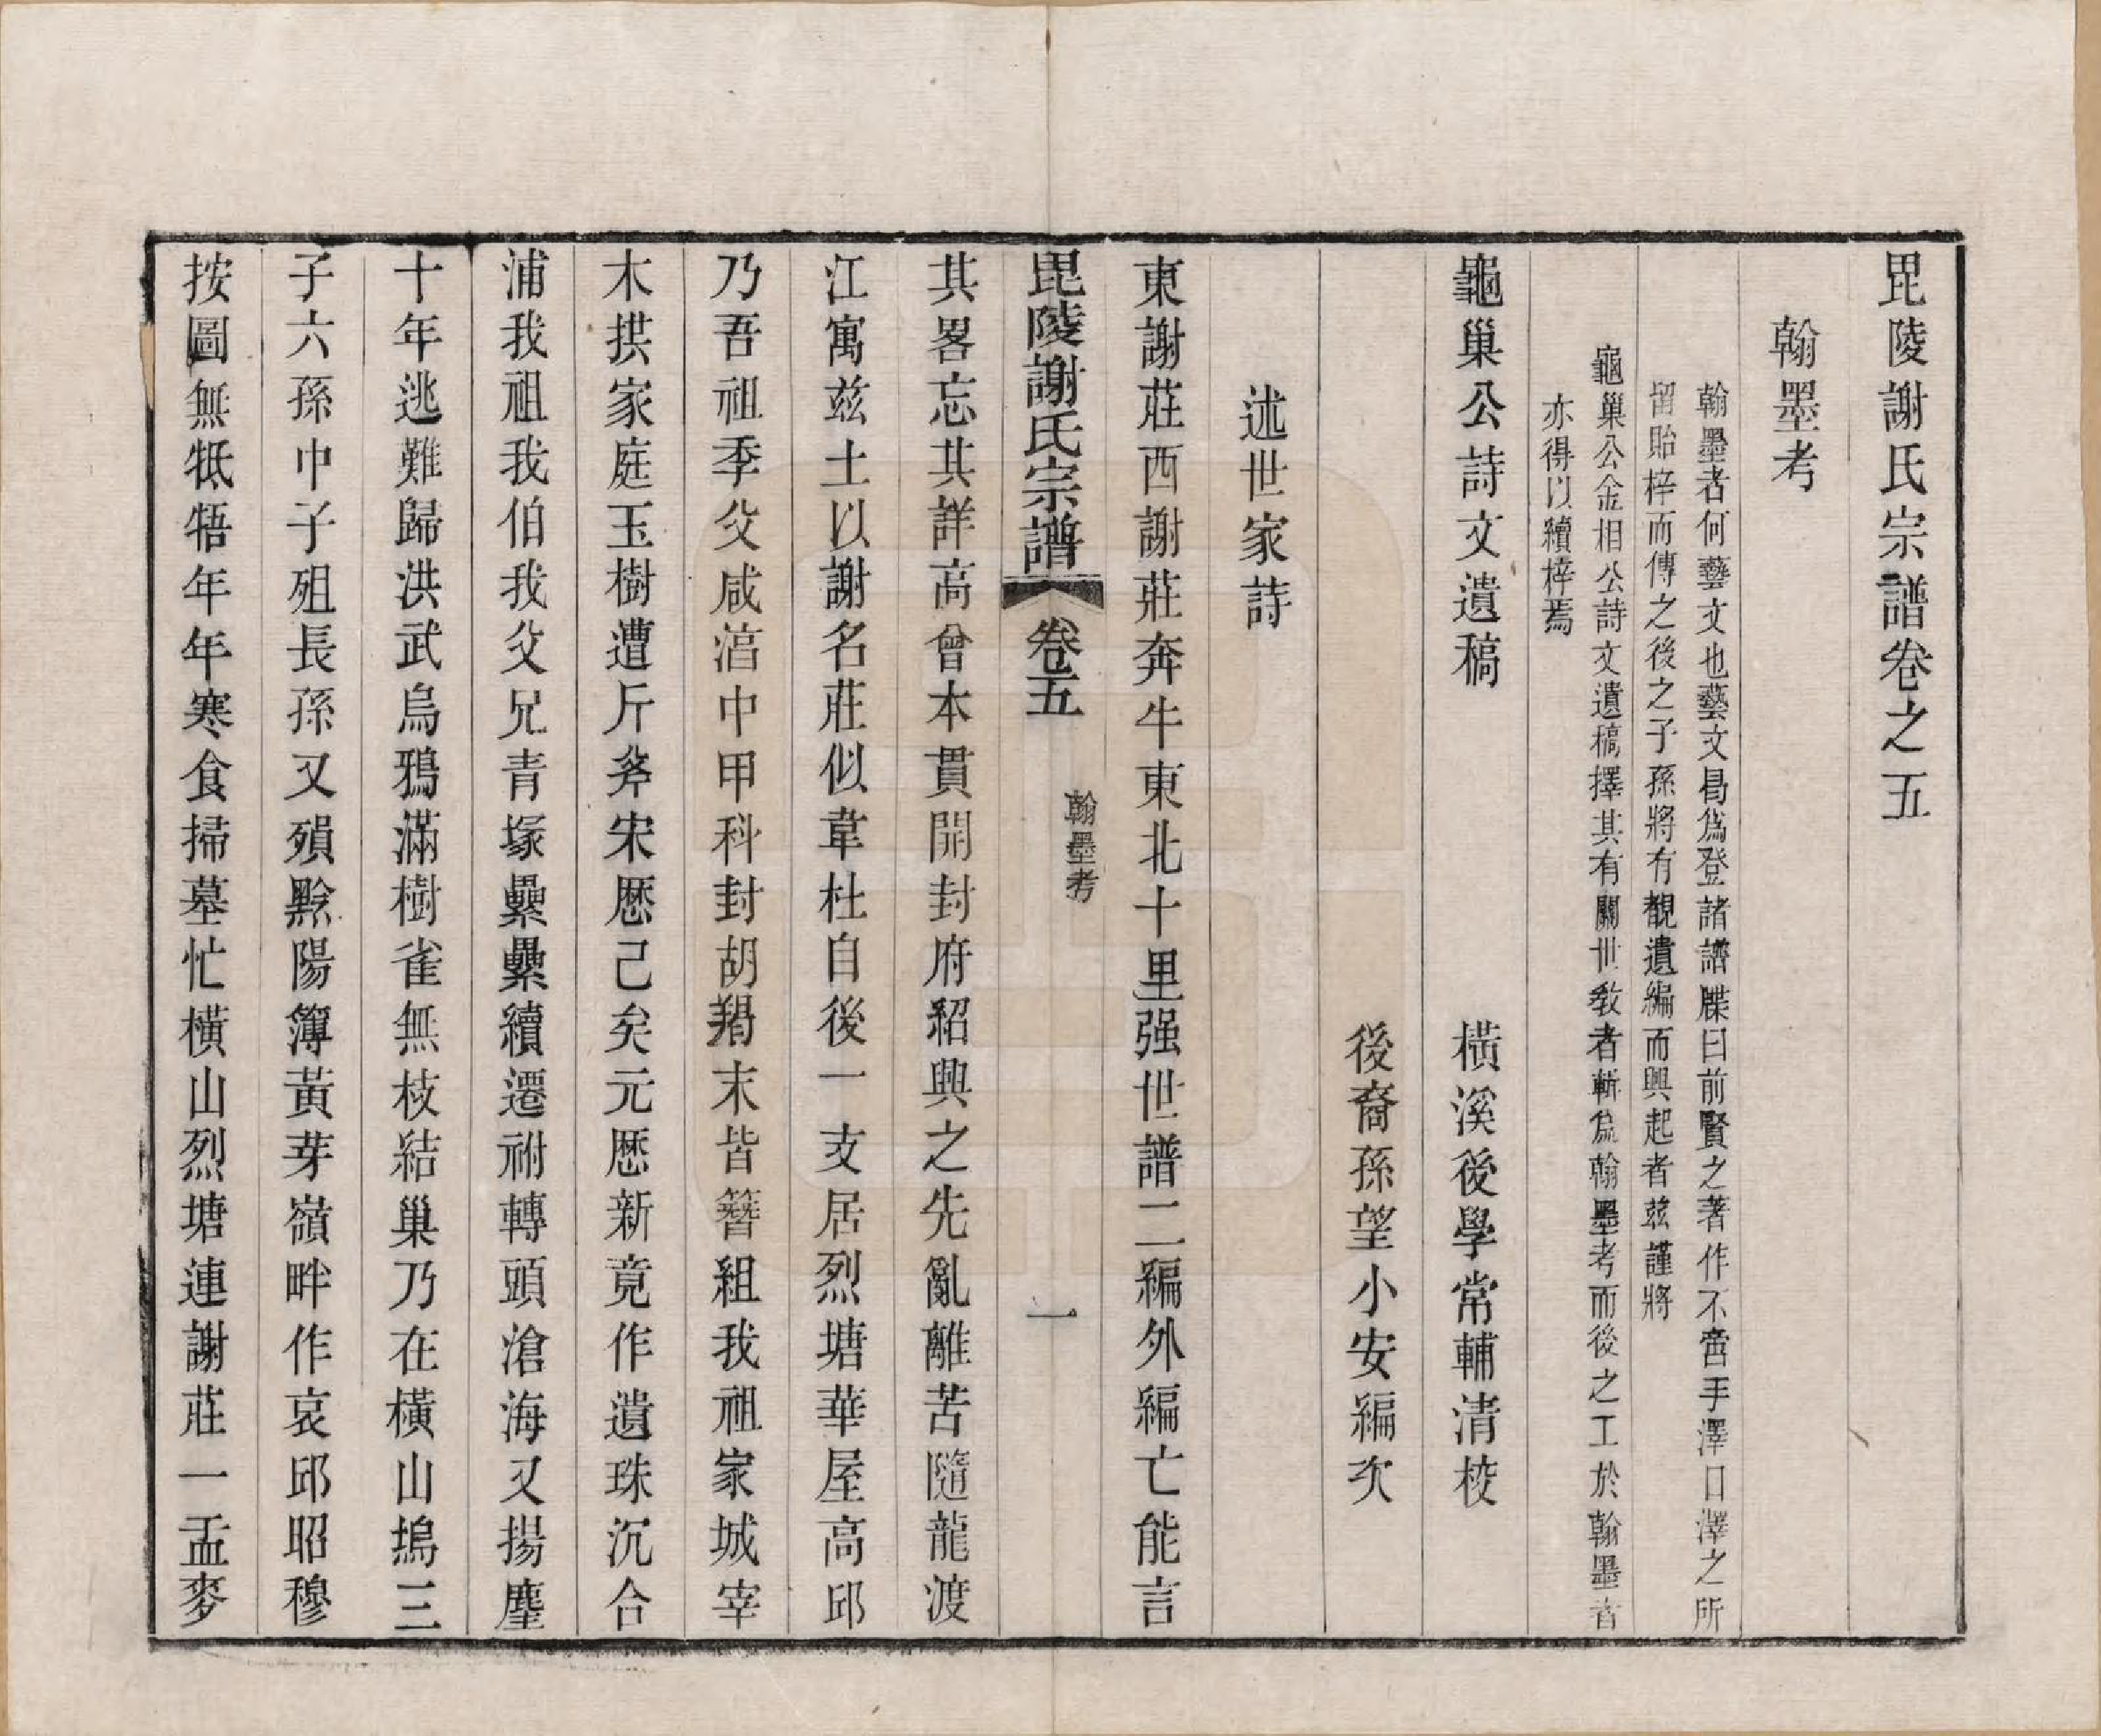 毘陵謝氏宗譜卷之五
翰墨考
翰墨者何藝文也藝文曷爲登諸譜牒曰前賢之著作不啻手澤口澤之所
留貽梓而傳之後之子孫將有覩遺編而興起者兹謹將
龜巢公金相公詩文遺稿擇其有關世敎者輯爲翰墨考而後之工於翰墨者
亦得以續梓焉
龜巢公詩文遺稿 橫溪後學常輔清校
後裔孫望小安編次
述世家詩
東謝莊西謝莊奔牛東北十里强世譜二編外編亡能言
毘陵謝氏宗譜 卷五 翰墨考 一
其畧忘其詳高曾本貫開封府紹興之先亂離苦隨龍渡
江寓兹土以謝名莊似韋杜自後一支居烈塘華屋高邱
乃吾祖季父咸湻中甲科封胡羯末皆簪組我祖家城宰
木拱家庭玉樹遭斤斧宋厯己矣元厯新竟作遺珠沉合
浦我祖我伯我父兄青塚纍纍續遷祔轉頭滄海又揚塵
十年逃難歸洪武烏鴉滿樹雀無枝結巢乃在橫山塢三
子六孫中子殂長孫又殞黔陽簿黃芽嶺畔作哀邱昭穆
按圖無牴牾年年寒食掃墓忙橫山烈塘連謝莊一盂麥